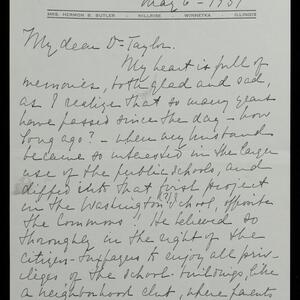 May 6 - 1937
MRS. HERMON B. BUTLER · HILLRISE · WINNETKA ILLINOIS
My dear Dr Taylor.
My heart is full of
memories, both glad and sad,
as I realize that so many years
have passed since the day - how
long ago? - when my husband
became so interested in the larger
use of the public schools, and
dipped into that first project
in the Washington(?) School, opposite
the Commons!! He believed so
thoroughly in the right of the
citizen-taxpayers to enjoy all priv-
ileges of the school-buildings, like
a neighborhood club, where parents